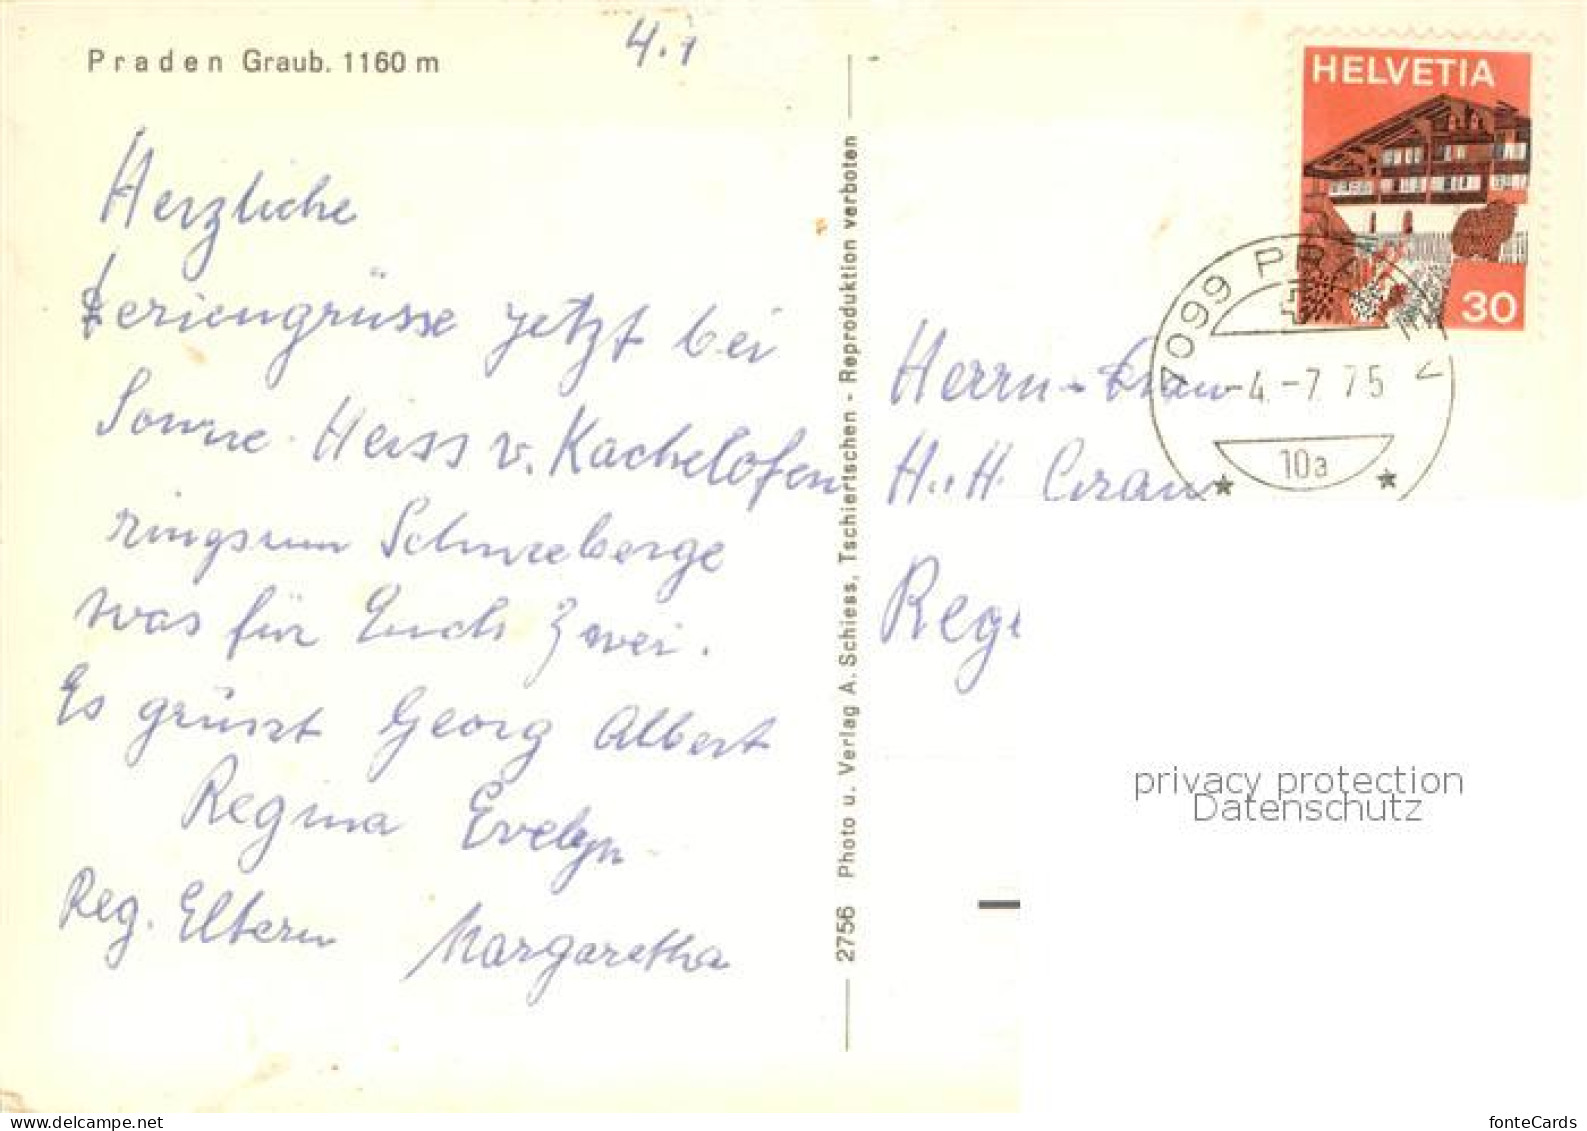 Praden Graub. 1160 m
4.7
Herzliche
Feriengrüsse jetzt bei
Sonne. Heiss v. Kachelofen
ringsum Schneeberge
was für Euch Zwei.
Es grüsst Georg Albert
Regina Evelyn
Reg. Eltern Margaretha
2756 Photo u. Verlag A. Schiess, Tschiertschen - Reproduktion verboten
HELVETIA
30
7099
-4.-7.75
10a
Herrn - Frau
H. H.
privacy protection
Datenschutz
fonteCards